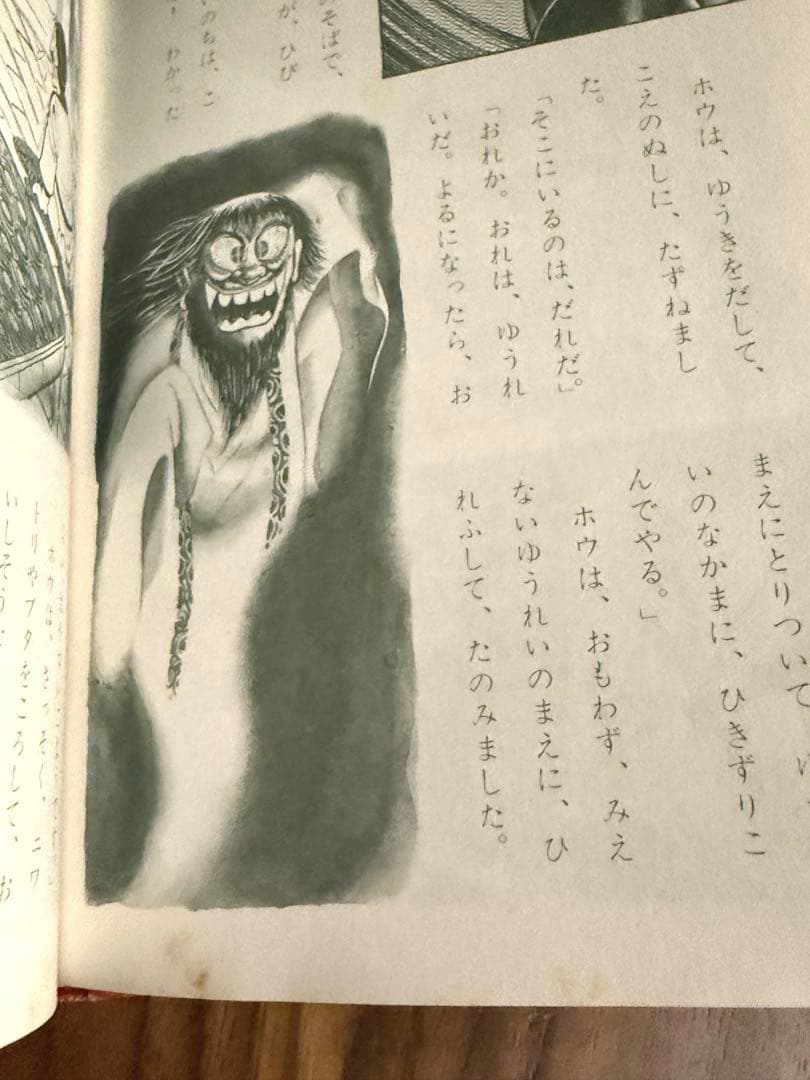 ホウは、ゆうきをだして、
こえのぬしに、たずねまし
た。
「そこにいるのは、だれだ。」
「おれか。おれは、ゆうれ
いだ。よるになったら、お
まえにとりついて
いのなかまに、ひきずりこ
んでやる。」
ホウは、おもわず、みえ
ないゆうれいのまえに、ひ
れふして、たのみました。
そばで、
が、ひび
いのちは、こ
わかった
ホウは、さっそく、ニワ
トリやブタをころして、お
いしそう